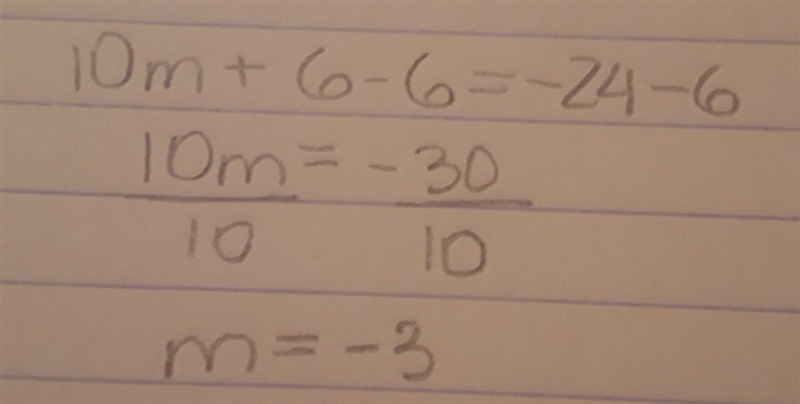 10m + 6 - 6 = -24 - 6
10m = -30
10 10
m = -3